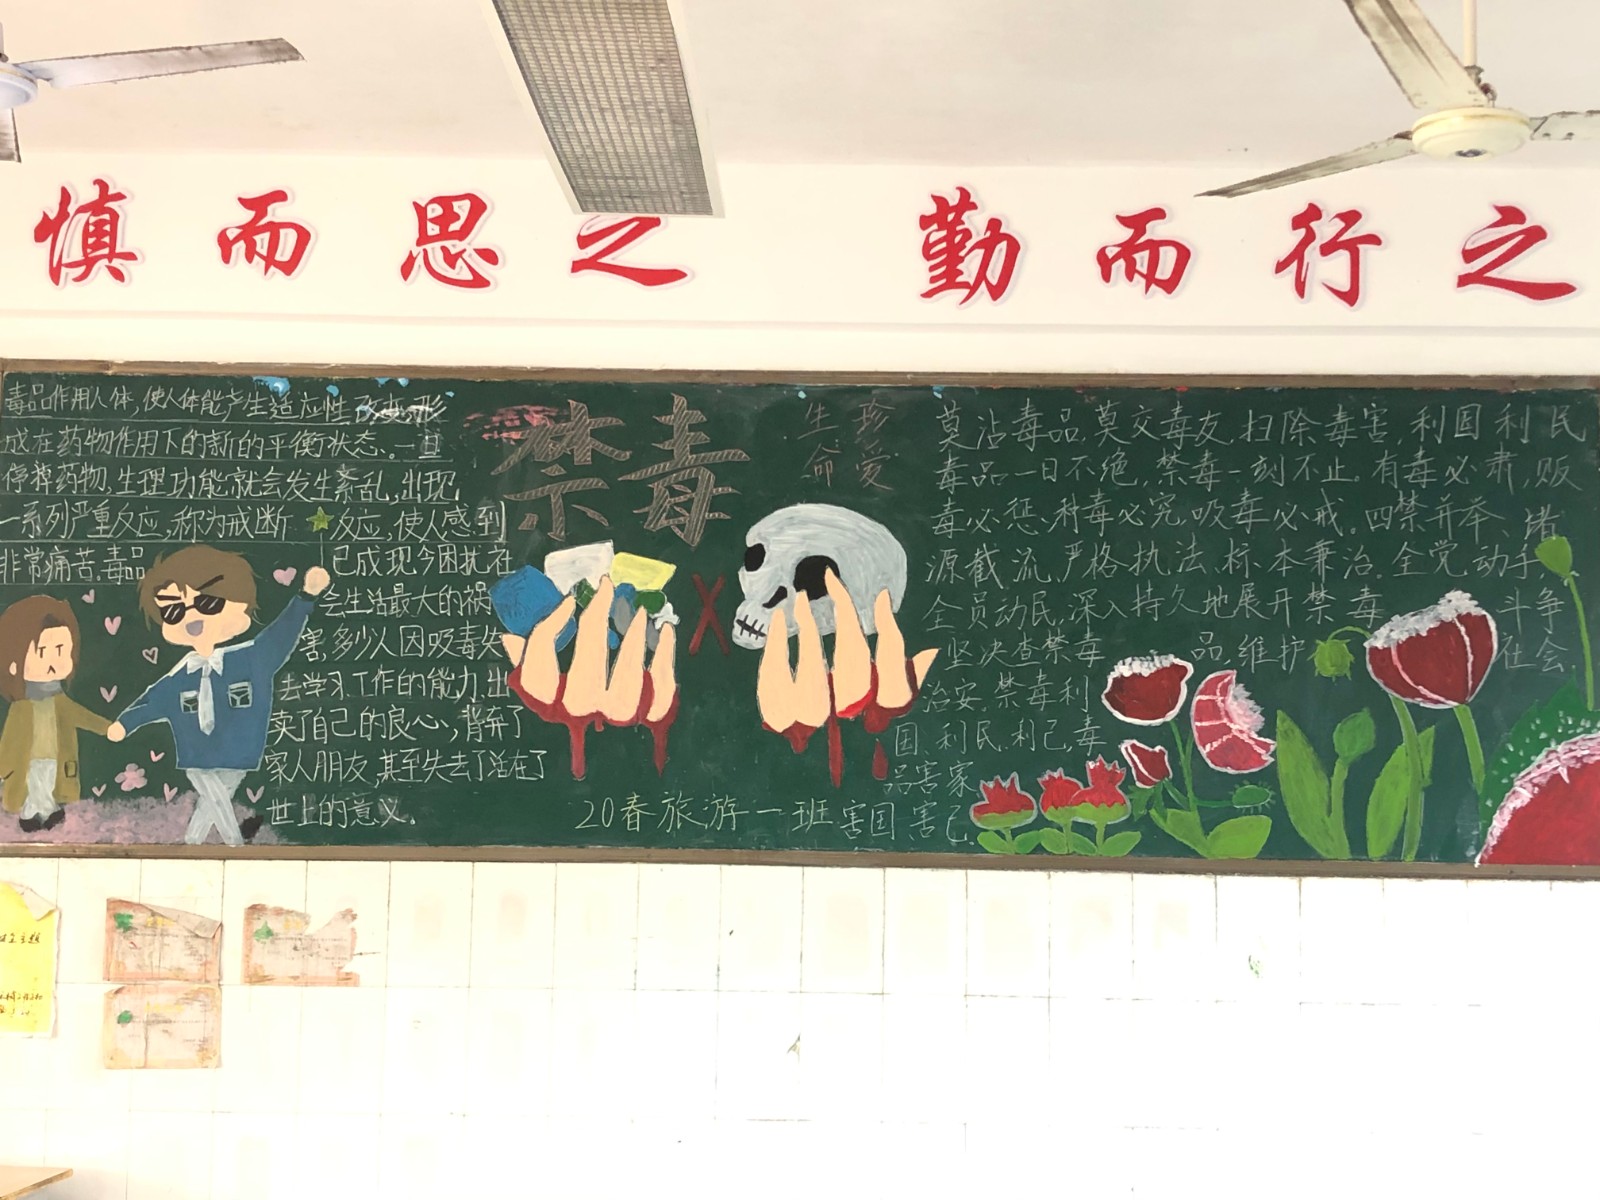 慎而思之 勤而行之
毒品作用人体,使人体能产生适应性改变形
成在药物作用下的新的平衡状态。一旦
停掉药物,生理功能就会发生紊乱,出现
一系列严重反应,称为戒断反应,使人感到
非常痛苦,毒品已成现今困扰社
会生活最大的祸
害,多少人因吸毒失
去学习工作的能力,出
卖了自己的良心,背弃了
家人朋友,甚至失去了活在了
世上的意义。
禁毒
珍爱
生命
20春旅游一班
莫沾毒品,莫交毒友,扫除毒害,利国利民
毒品一日不绝,禁毒一刻不止。有毒必肃,贩
毒必惩,种毒必究,吸毒必戒。四禁并举、堵
源截流,严格执法,标本兼治。全党动手,
全员动民,深入持久地展开禁毒斗争
坚决查禁毒品维护社会
治安,禁毒利
国、利民、利己,毒
品害家
害国害己.